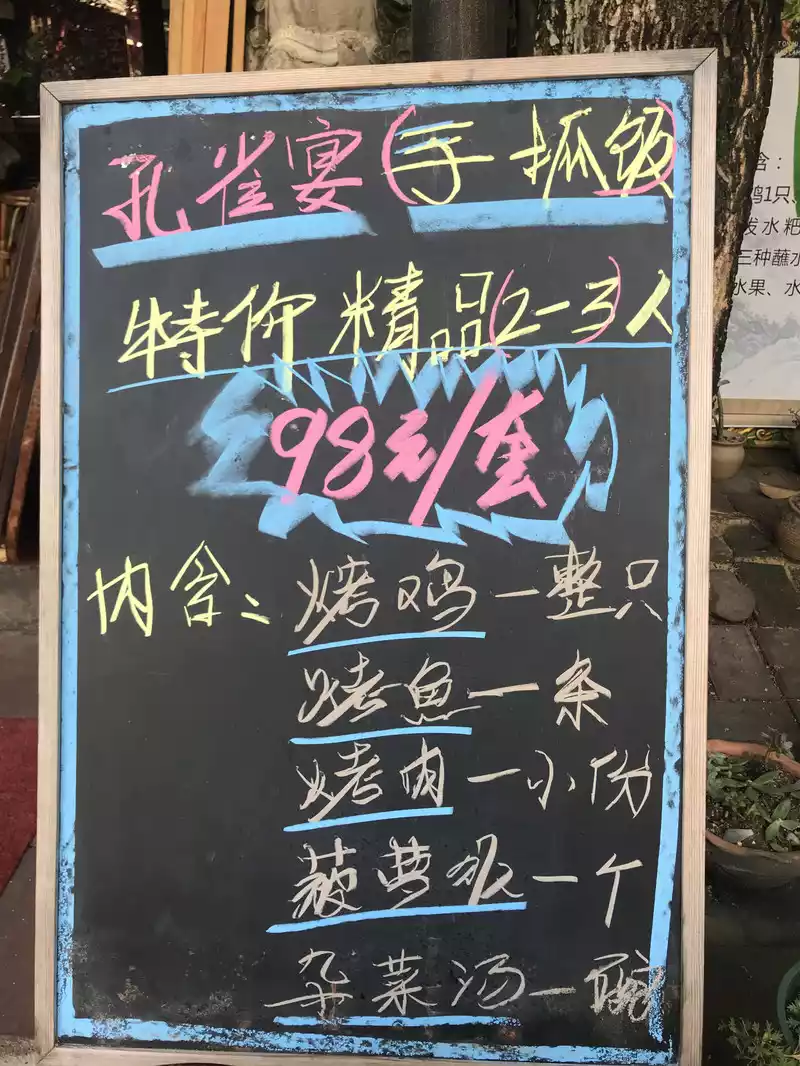 孔雀宴(手抓饭)
特价精品(2-3)人
98元/套
内含:烤鸡一整只
烤鱼一条
烤肉一小份
菠萝饭一个
杂菜汤一碗
含:
鸡1只、
发水粑
三种蘸水
水果、水